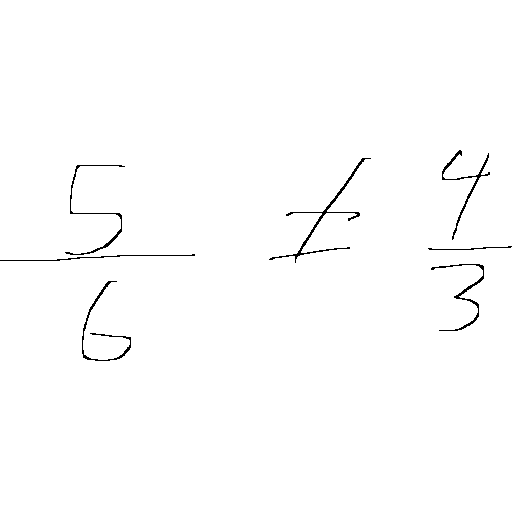 \frac{5}{6} \neq \frac{4}{3}